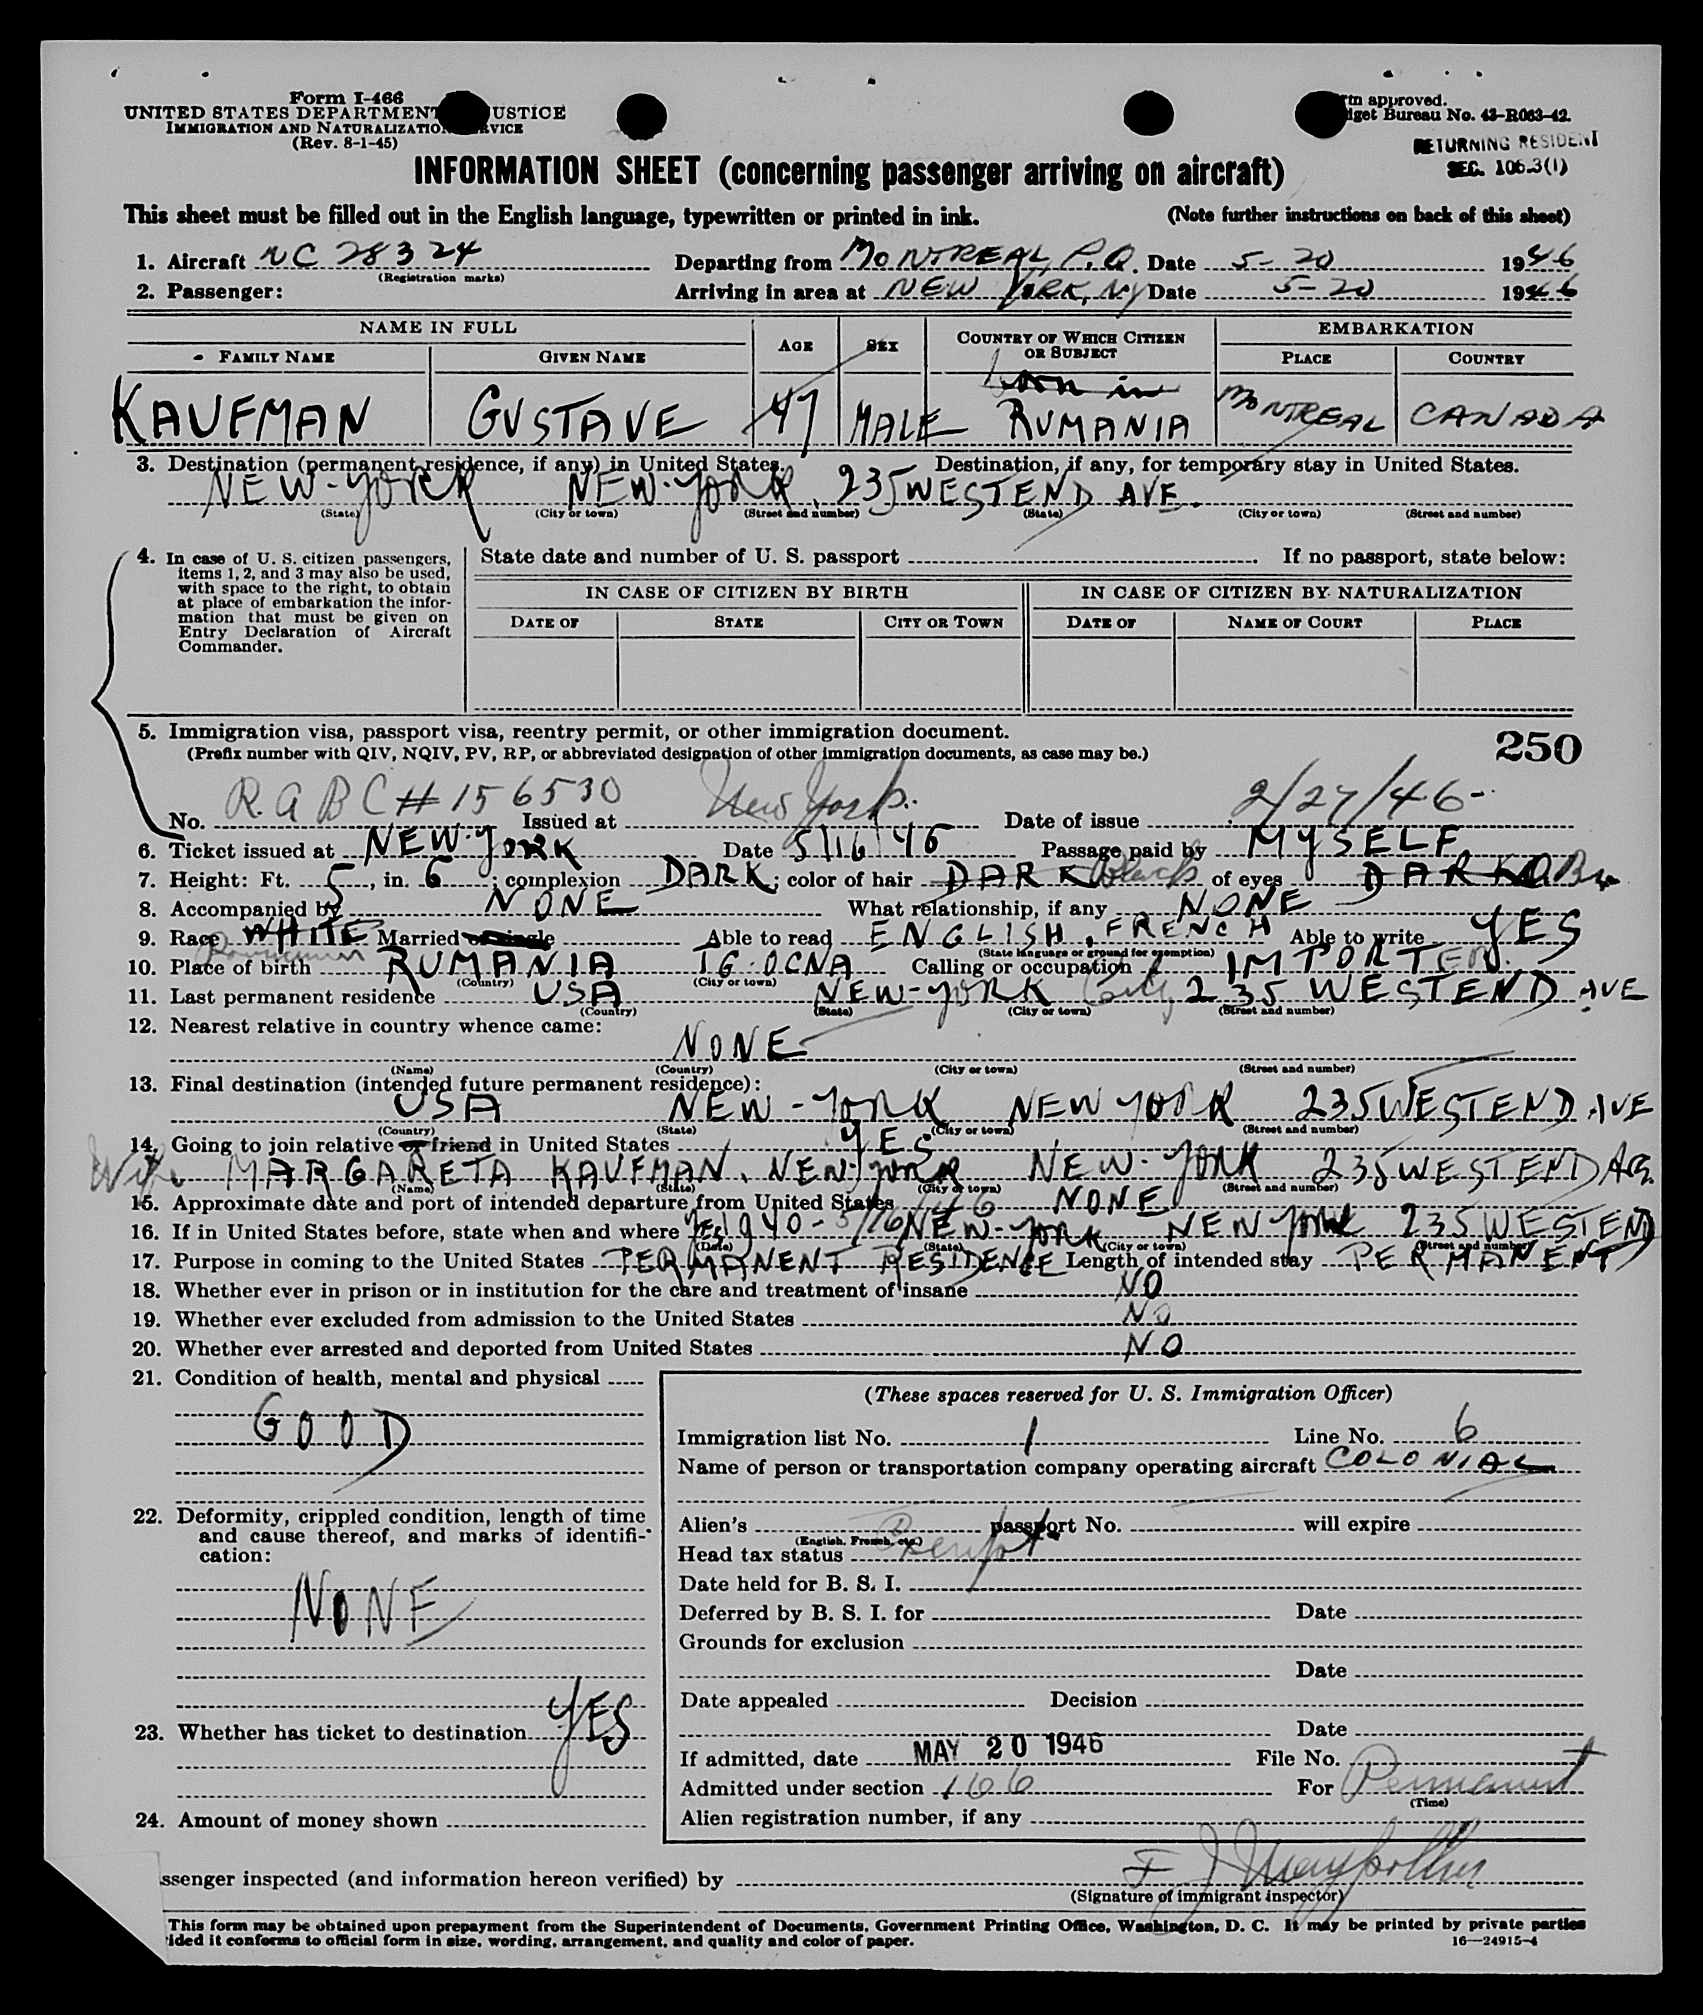 Form I-466
UNITED STATES DEPARTMENT USTICE
IMMIGRATION AND NATURALIZATIO RVICE
(Rev. 8-1-45)
rm approved.
dget Bureau No. 43-R063-42.
RETURNING RESIDENT
SEC. 106.3(1)
INFORMATION SHEET (concerning passenger arriving on aircraft)
This sheet must be filled out in the English language, typewritten or printed in ink. (Note further instructions on back of this sheet)
1. Aircraft NC 28324 Departing from MONTREAL, P.Q. Date 5-20 1946
(Registration marks)
2. Passenger: Arriving in area at NEW YORK, NY Date 5-20 1946
NAME IN FULL AGE SEX COUNTRY OF WHICH CITIZEN OR SUBJECT EMBARKATION
FAMILY NAME GIVEN NAME PLACE COUNTRY
born in
KAUFMAN GUSTAVE 47 MALE RUMANIA MONTREAL CANADA
3. Destination (permanent residence, if any) in United States. Destination, if any, for temporary stay in United States.
NEW-YORK NEW-YORK, 235 WESTEND AVE.
(State) (City or town) (Street and number) (State) (City or town) (Street and number)
4. In case of U. S. citizen passengers, items 1, 2, and 3 may also be used, with space to the right, to obtain at place of embarkation the information that must be given on Entry Declaration of Aircraft Commander.
State date and number of U. S. passport If no passport, state below:
IN CASE OF CITIZEN BY BIRTH IN CASE OF CITIZEN BY NATURALIZATION
DATE OF STATE CITY OR TOWN DATE OF NAME OF COURT PLACE
5. Immigration visa, passport visa, reentry permit, or other immigration document.
(Prefix number with QIV, NQIV, PV, RP, or abbreviated designation of other immigration documents, as case may be.)
250
No. R.A B C # 156530 Issued at New York Date of issue 2/27/46
6. Ticket issued at NEW-YORK Date 5/16/46 Passage paid by MYSELF
7. Height: Ft. 5, in. 6; complexion DARK; color of hair DARK Black of eyes DARK
8. Accompanied by NONE What relationship, if any NONE
9. Race WHITE Married or single Able to read ENGLISH, FRENCH Able to write YES
Roumanian (State language or ground for exemption)
10. Place of birth RUMANIA TG-OCNA Calling or occupation IMPORTER
(Country) (City or town)
11. Last permanent residence USA NEW-YORK City 235 WESTEND AVE
(Country) (State) (City or town) (Street and number)
12. Nearest relative in country whence came:
NONE
(Name) (Country) (City or town) (Street and number)
13. Final destination (intended future permanent residence):
USA NEW-YORK NEW YORK 235 WESTEND AVE
(Country) (State) (City or town) (Street and number)
14. Going to join relative or friend in United States YES
Wife MARGARETA KAUFMAN, NEW-YORK NEW-YORK 235 WESTEND AVE.
(Name) (State) (City or town) (Street and number)
15. Approximate date and port of intended departure from United States NONE
16. If in United States before, state when and where YES 1940 - 5/16/46 NEW-YORK NEW YORK 235 WESTEND
(Date) (State) (City or town) (Street and number)
17. Purpose in coming to the United States PERMANENT RESIDENCE Length of intended stay PERMANENT
18. Whether ever in prison or in institution for the care and treatment of insane NO
19. Whether ever excluded from admission to the United States NO
20. Whether ever arrested and deported from United States NO
21. Condition of health, mental and physical
GOOD
22. Deformity, crippled condition, length of time and cause thereof, and marks of identification:
NONE
23. Whether has ticket to destination YES
24. Amount of money shown
(These spaces reserved for U. S. Immigration Officer)
Immigration list No. 1 Line No. 6
Name of person or transportation company operating aircraft COLONIAL
Alien's passport No. will expire
(English, French, etc.)
Head tax status Exempt
Date held for B. S. I.
Deferred by B. S. I. for Date
Grounds for exclusion
Date
Date appealed Decision
Date
If admitted, date MAY 20 1946 File No.
Admitted under section 166 For Permanent
(Time)
Alien registration number, if any
ssenger inspected (and information hereon verified) by F J
(Signature of immigrant inspector)
This form may be obtained upon prepayment from the Superintendent of Documents, Government Printing Office, Washington, D. C. It may be printed by private parties
ided it conforms to official form in size, wording, arrangement, and quality and color of paper. 16—24915-4